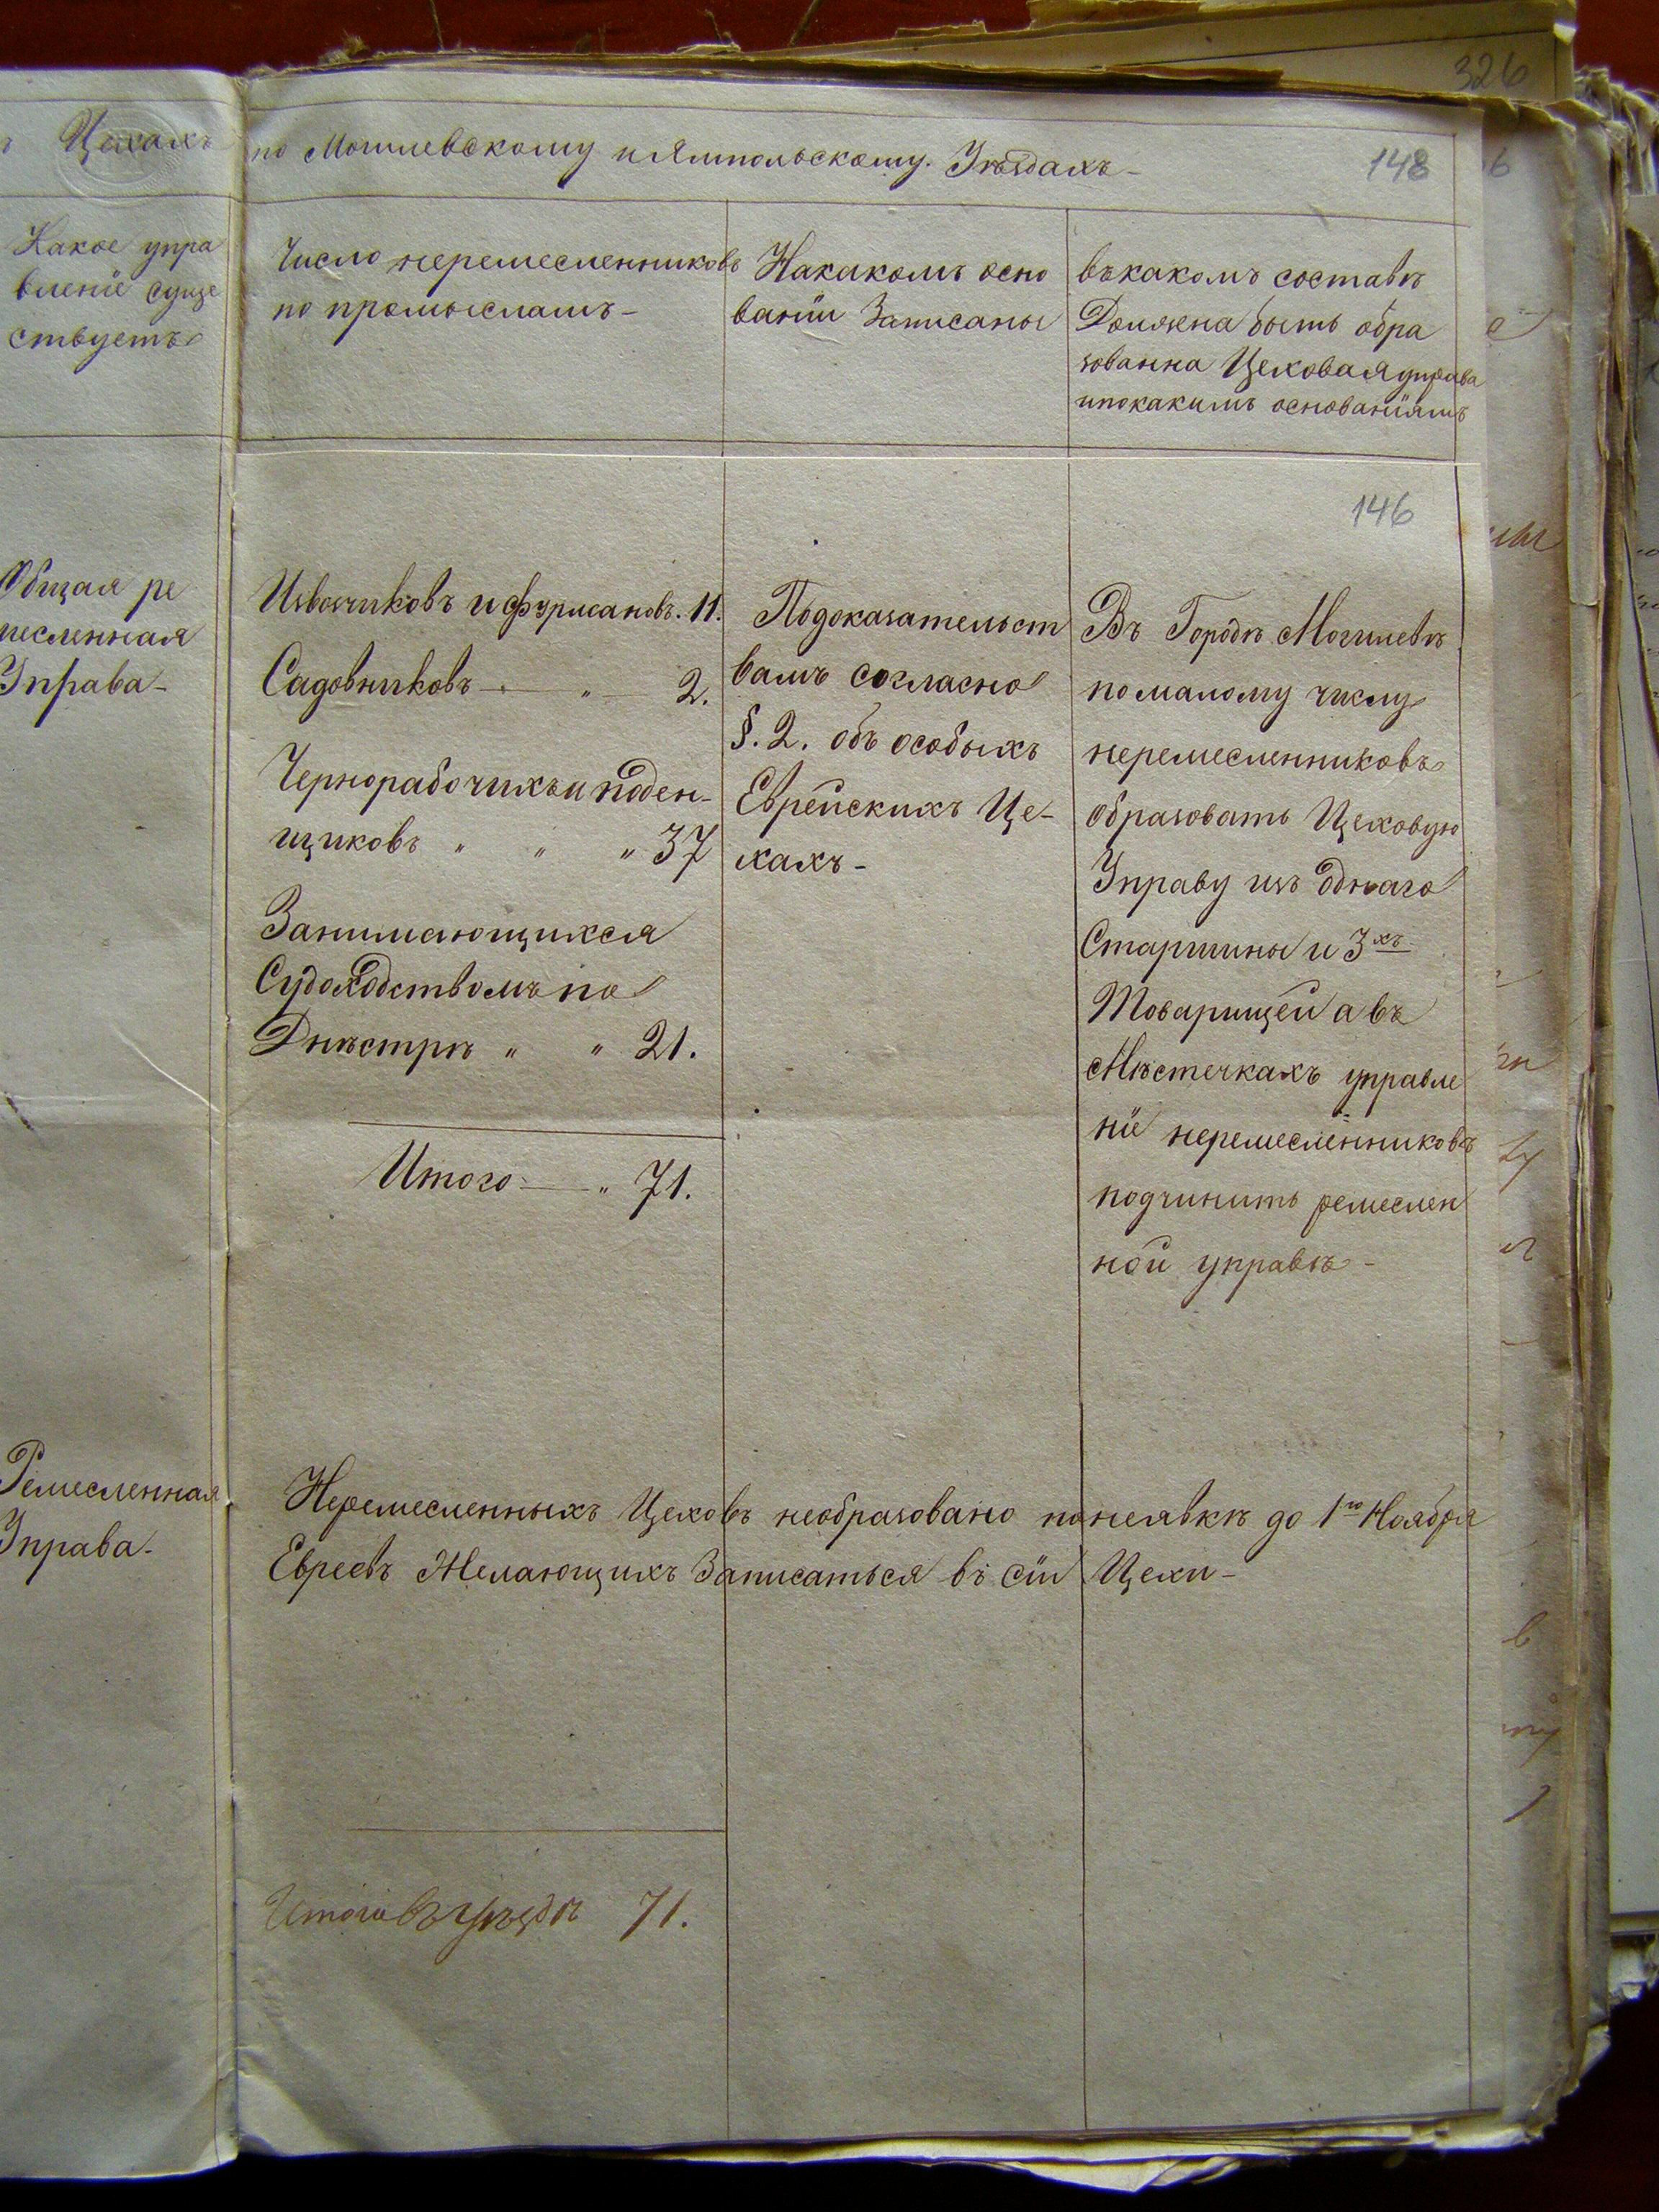 326
Цехахъ
по Могилевскому и Ямпольскому. Уѣздахъ-
148
Какое упра
вленіе суще
ствуетъ
Число неремесленниковъ
по промысламъ-
На какомъ осно
ваніи Записаны
въ какомъ составѣ
Должна быть обра
зованна Цеховая управа
и по какимъ основаніямъ
146
Общая ре
месленная
Управа-
Извозчиковъ и фурмановъ. 11.
Садовниковъ — " — 2.
Чернорабочихъ и поден-
щиковъ " " " 37
Занимающихся
Судоходствомъ по
Днѣстрѣ " " 21.
Итого — " 71.
По доказательст
вамъ согласно
§. 2. объ особыхъ
Еврейскихъ Це-
хахъ-
Въ Городѣ Могилевѣ
по малому числу
неремесленниковъ
образовать Цеховую
Управу изъ однаго
Старшины и 3хъ
Товарищей а въ
Мѣстечкахъ управле
ніе неремесленниковъ
подчинить ремеслен
ной управѣ-
Ремесленная
Управа-
Неремесленныхъ Цеховъ необразовано по неявкѣ до 1го Ноября
Евреевъ Желающихъ Записаться въ сіи Цехи-
Итого въ уѣздѣ 71.